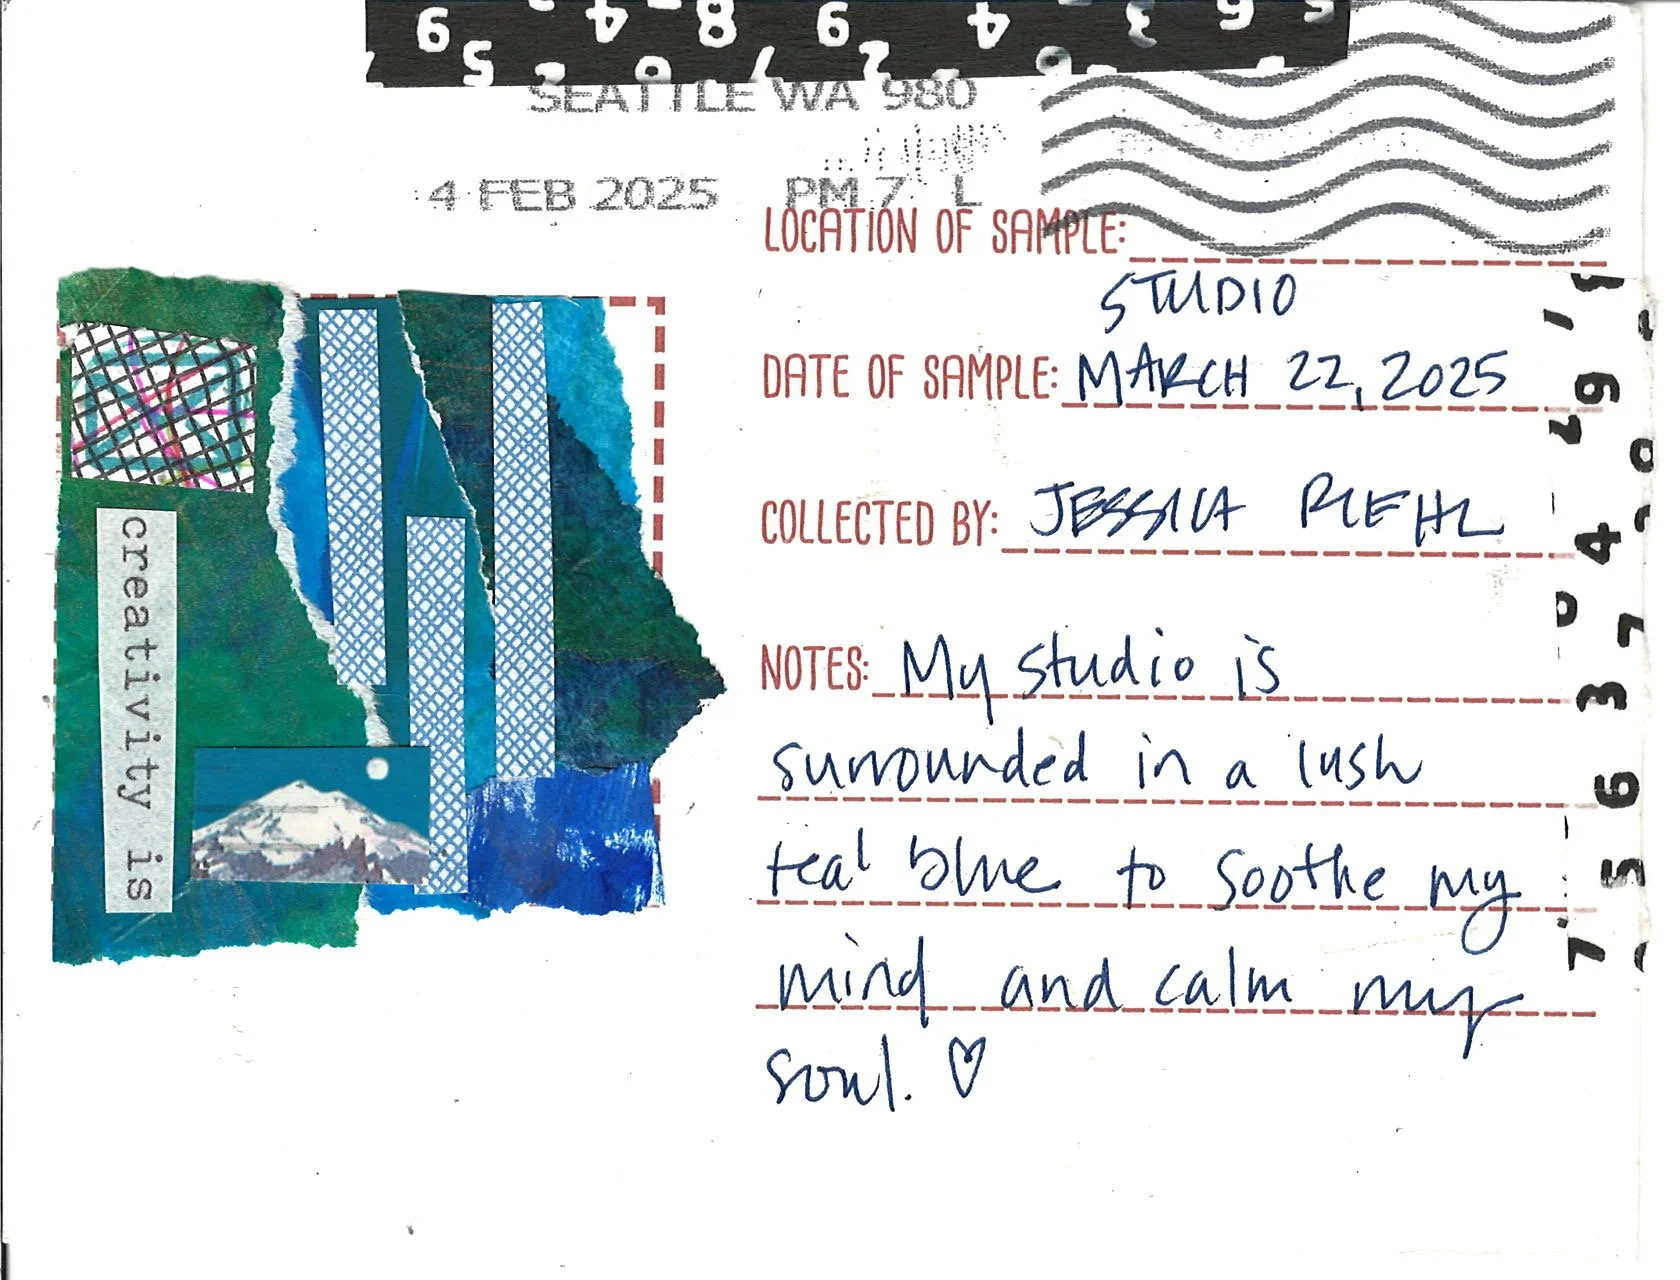 SEATTLE WA 980
4 FEB 2025 PM 7 L
LOCATION OF SAMPLE:
STUDIO
DATE OF SAMPLE: MARCH 22, 2025
COLLECTED BY: JESSICA RIEHL
NOTES: My studio is
surrounded in a lush
teal blue to soothe my
mind and calm my
soul. ♡
creativity is